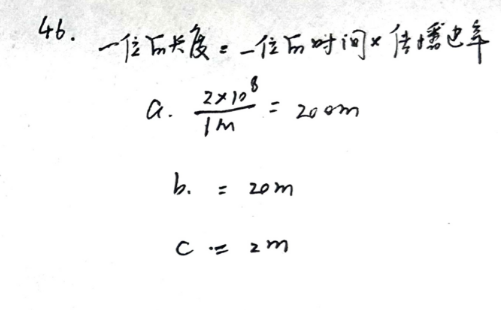 46. 一位的长度 = 一位的时间 × 传播速率
a. 2×10⁸ / 1M = 200m
b. = 20m
c = 2m